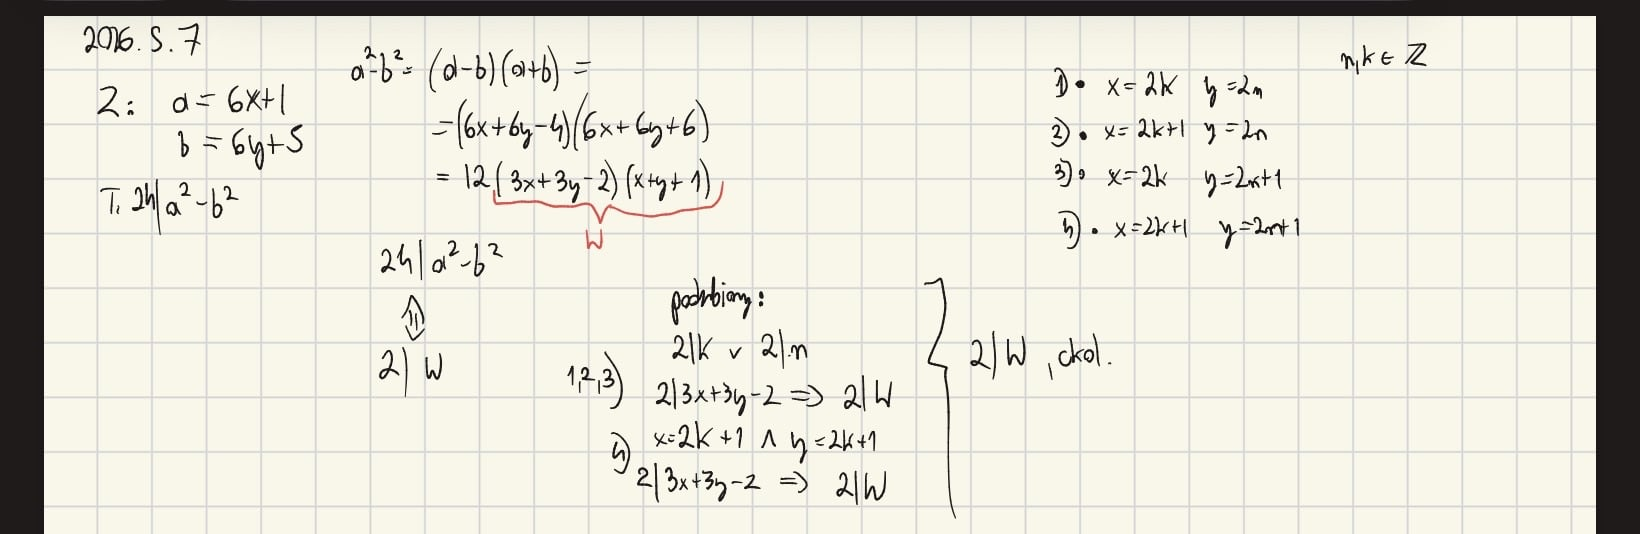 2016.S.7
Z: a = 6x+1
b = 6y+5
T. 24|a²-b²
a²-b² = (a-b)(a+b) =
= (6x+6y-4)(6x+6y+6)
= 12(3x+3y-2)(x+y+1)
W
24|a²-b²
⇕
2|W
1,2,3)
2|k ∨ 2|n
2|3x+3y-2 ⇒ 2|W
4) x=2k+1 ∧ y=2k+1
2|3x+3y-2 ⇒ 2|W
2|W, ckd.
n,k ∈ ℤ
1) • x=2k y=2n
2) • x=2k+1 y=2n
3) • x=2k y=2n+1
4) • x=2k+1 y=2n+1